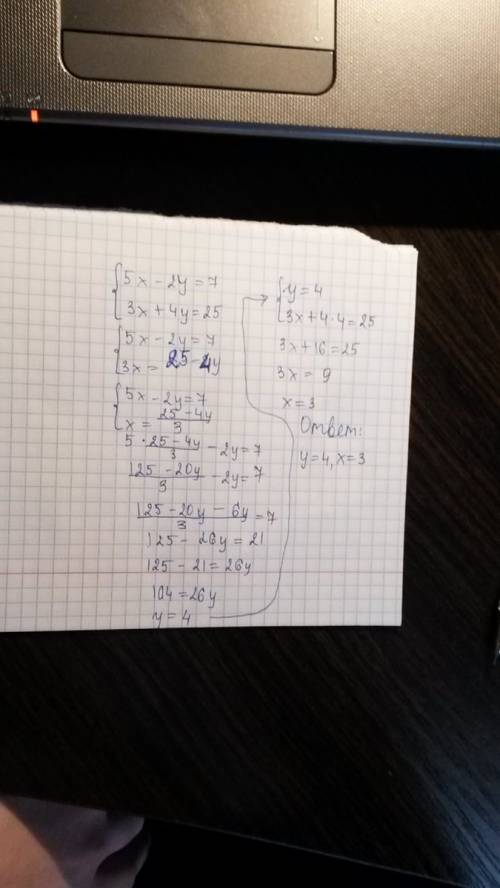 5x - 2y = 7
3x + 4y = 25
5x - 2y = 7
3x = 25 - 4y
5x - 2y = 7
x = (25 - 4y)/3
5 · (25 - 4y)/3 - 2y = 7
(125 - 20y)/3 - 2y = 7
(125 - 20y - 6y)/3 = 7
125 - 26y = 21
125 - 21 = 26y
104 = 26y
y = 4
y = 4
3x + 4·4 = 25
3x + 16 = 25
3x = 9
x = 3
Ответ:
y = 4, x = 3